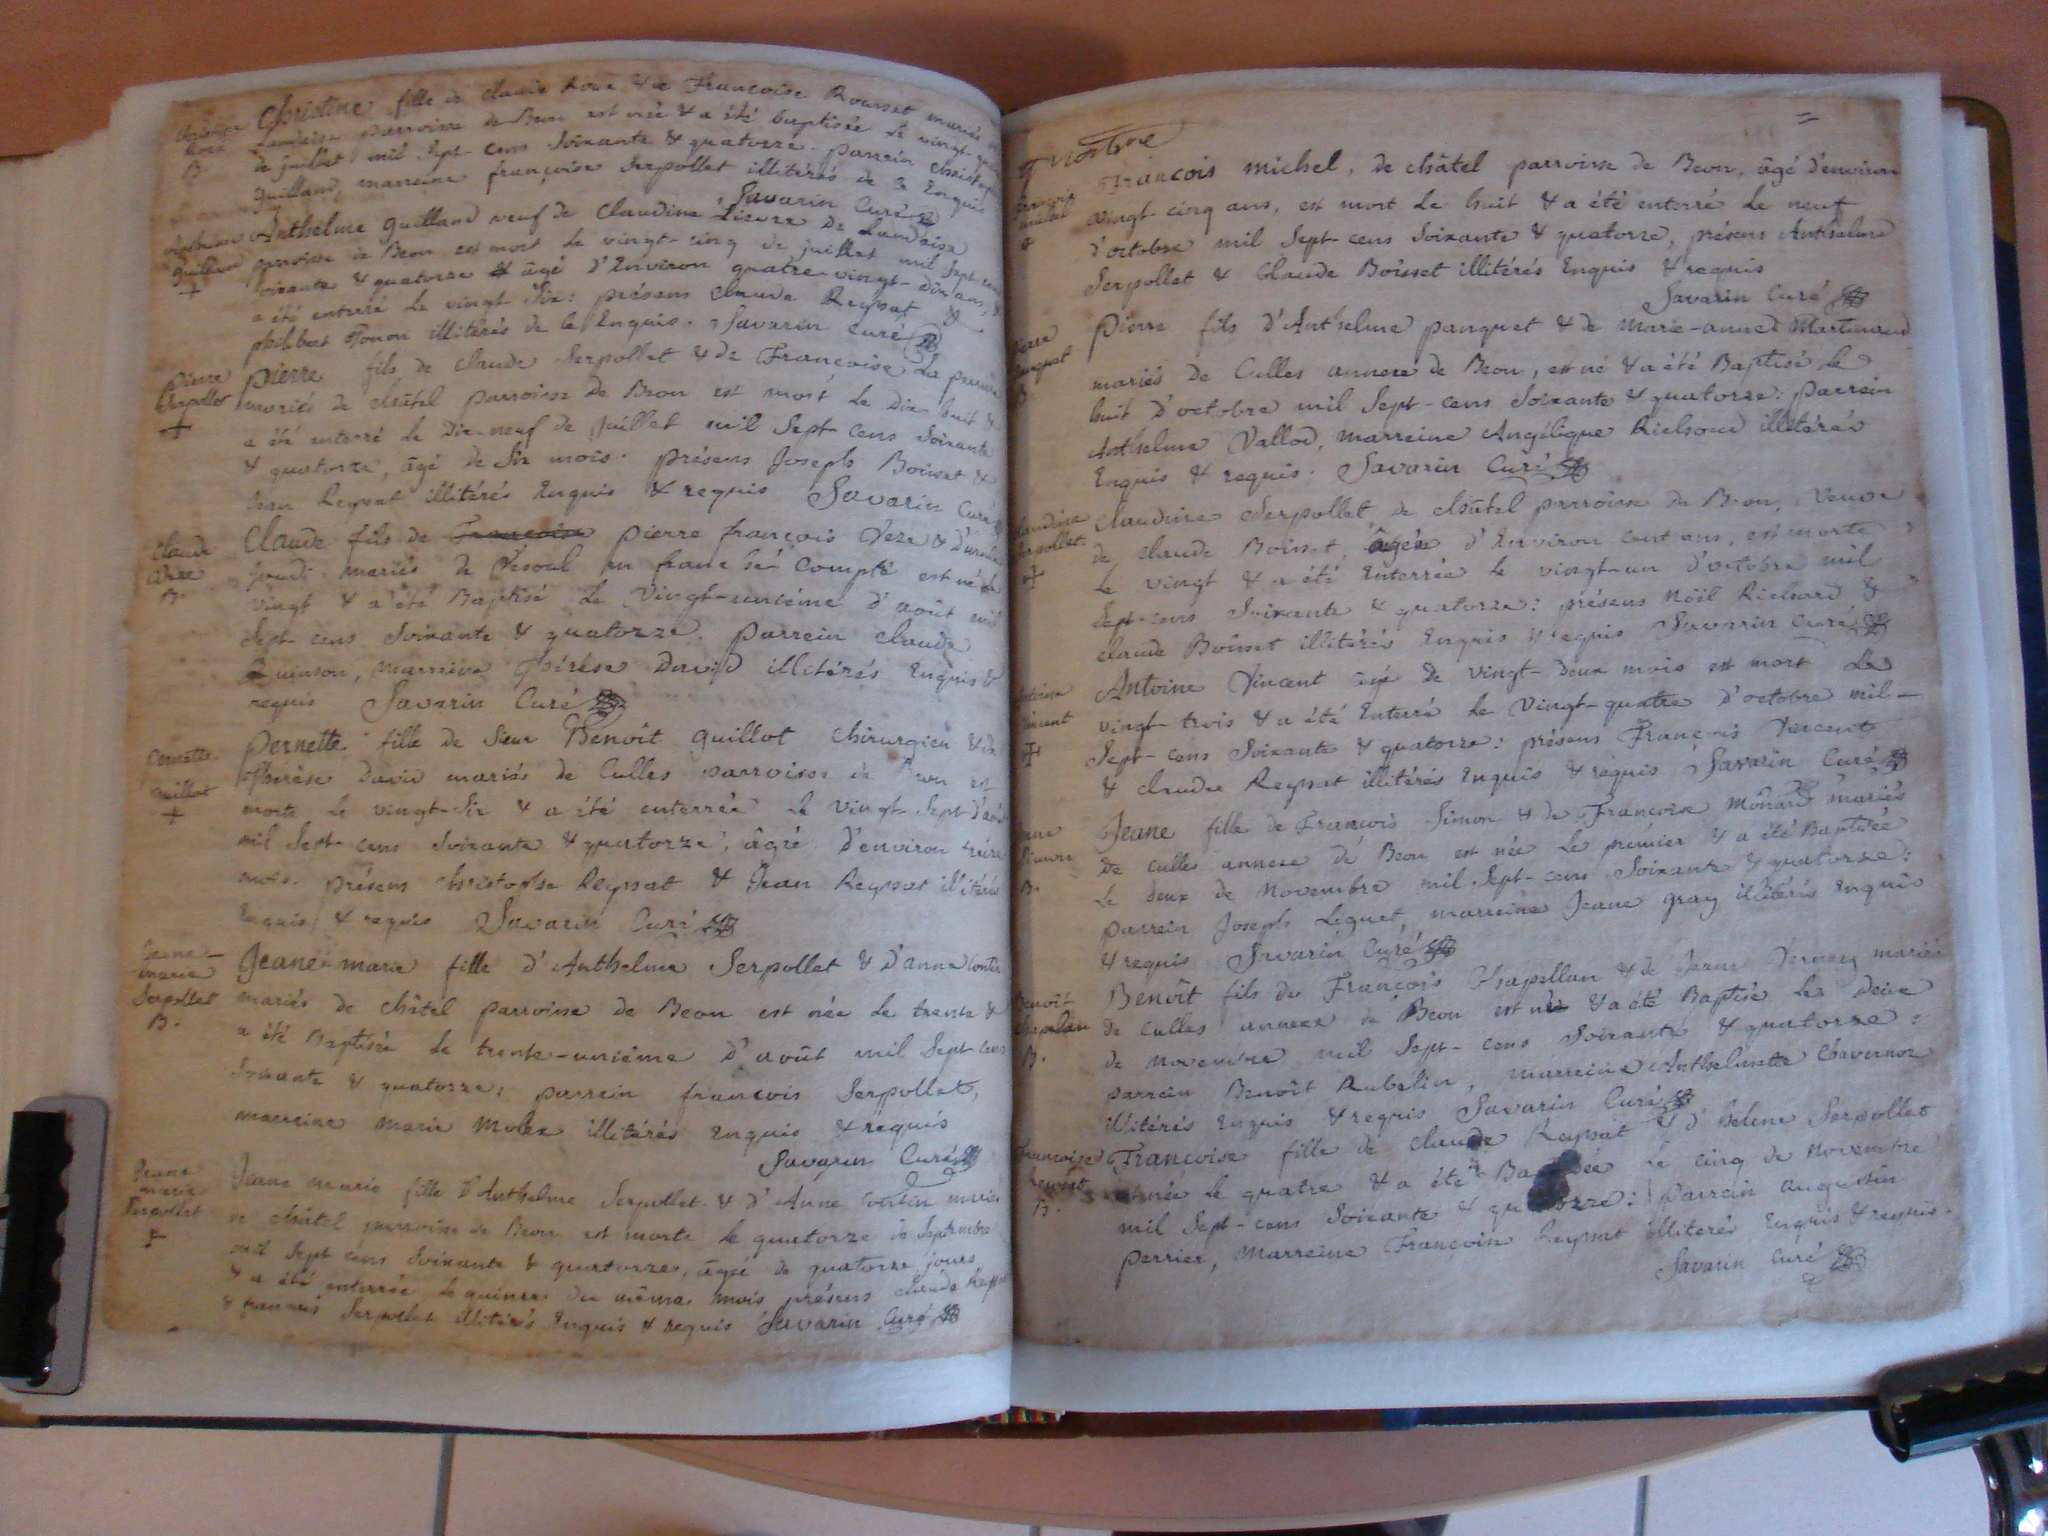 Christine fille de claude Roux & de Françoise Rousset mariés
Landaise parroisse de Beon est née & a été baptisée le vingt
de juillet mil Sept-cens Soixante & quatorze. parrein
guilland, marreine françoise Serpollet illitérés de ce Enquis
Savarin Curé
Anthelme guilland
+
Anthelme guilland veuf de Claudine Lievre de Landaise
parroisse de Beon est mort le vingt-cinq de juillet mil Sept-cens
soixante & quatorze âgé d'Environ quatre-vingt-dix ans, &
a été enterré le vingt-Six: présens claude Reypat &
philibert Tonon illitérés de ce Enquis. Savarin Curé
pierre
Serpollet
+
pierre fils de claude Serpollet & de Françoise La
mariés de châtel parroisse de Beon est mort le Dix-huit &
a été enterré le Dix-neuf de juillet mil Sept cens Soixante
& quatorze, âgé de Six mois. présens Joseph Boisset &
Jean Reypat illitérés Enquis & requis Savarin Curé
Claude
B.
Claude fils de pierre françois Veze & d'ursule
mariés de Vésoul en franche-Compté est né le
vingt & a été Baptisé le Vingt-unième d'août mil
Sept-cens Soixante & quatorze. parrein claude
Quinson, marreine Thérèse David illitérés Enquis &
requis Savarin Curé
Pernette
guillot
+
Pernette fille de Sieur Benoît guillot Chirurgien & de
Thérèse David mariés de Culles parroisse de Beon est
morte le vingt-Six & a été enterrée le vingt-Sept d'août
mil Sept-cens Soixante & quatorze, âgée d'environ treize
mois. présens christophe Reypat & Jean Reypat illitérés
Enquis & requis Savarin Curé
Jeane-
marie
Serpollet
B.
Jeane-marie fille d'Anthelme Serpollet & d'anne Contin
mariés de châtel parroisse de Beon est née le trente &
a été Baptisée le trente-unième d'août mil Sept-cens
Soixante & quatorze; parrein françois Serpollet,
marreine marie Molex illitérés Enquis & requis
Savarin Curé
Jeane
marie
Serpollet
+
Jeane marie fille d'Anthelme Serpollet & d'Anne Contin mariés
de châtel parroisse de Beon est morte le quatorze de Septembre
mil Sept cens Soixante & quatorze, âgée de quatorze jours
& a été enterrée le quinze du même mois présens claude Reypat
& françois Serpollet illitérés Enquis & requis Savarin Curé
François
michel
+
François michel, de châtel parroisse de Beon, âgé d'environ
vingt-cinq ans, est mort le huit & a été enterré le neuf
d'octobre mil Sept-cens Soixante & quatorze, présens Anthelme
Serpollet & Claude Boisset illitérés Enquis & requis
Savarin Curé
Pierre
panquet
B.
Pierre fils d'Anthelme panquet & de marie-anne Martinand
mariés de Culles annexe de Beon, est né & a été Baptisé le
huit d'octobre mil Sept-cens Soixante & quatorze: parrein
Anthelme Vallod, marreine Angélique Richard illitérés
Enquis & requis. Savarin Curé
Claudine
Serpollet
+
Claudine Serpollet de châtel parroisse de Beon, Veuve
de claude Boisset, âgée d'Environ cent ans, est morte
le vingt & a été Enterrée le vingt-un d'octobre mil
Sept-cens Soixante & quatorze: présens Noël Richard &
claude Boisset illitérés Enquis & requis Savarin Curé
Antoine
Vincent
+
Antoine Vincent âgé de vingt-deux mois est mort le
vingt-trois & a été Enterré le Vingt-quatre d'octobre mil-
Sept-cens Soixante & quatorze: présens François Vincent
& claude Reypat illitérés Enquis & requis Savarin Curé
Jeane
Simon
B.
Jeane fille de François Simon & de Françoise Monard mariés
de culles annexe de Beon est née le premier & a été Baptisée
le deux de Novembre mil Sept-cens Soixante & quatorze:
parrein Joseph Liquet, marreine Jeane gray illitérés Enquis
& requis Savarin Curé
Benoît
Chapellan
B.
Benoît fils de François Chapellan & de Jeane mariés
de culles annexe de Beon est né & a été Baptisé le Deux
de Novembre mil Sept-cens Soixante & quatorze:
parrein Benoît Rubelin, marreine Anthelmette Chavernoz
illitérés Enquis & requis Savarin Curé
Françoise
Reypat
B.
Françoise fille de claude Reypat & d'helene Serpollet
est née le quatre & a été Baptisée le cinq de Novembre
mil Sept-cens Soixante & quatorze: parrein augustin
perrier, Marreine Françoise Reypat illitérés Enquis & requis.
Savarin Curé